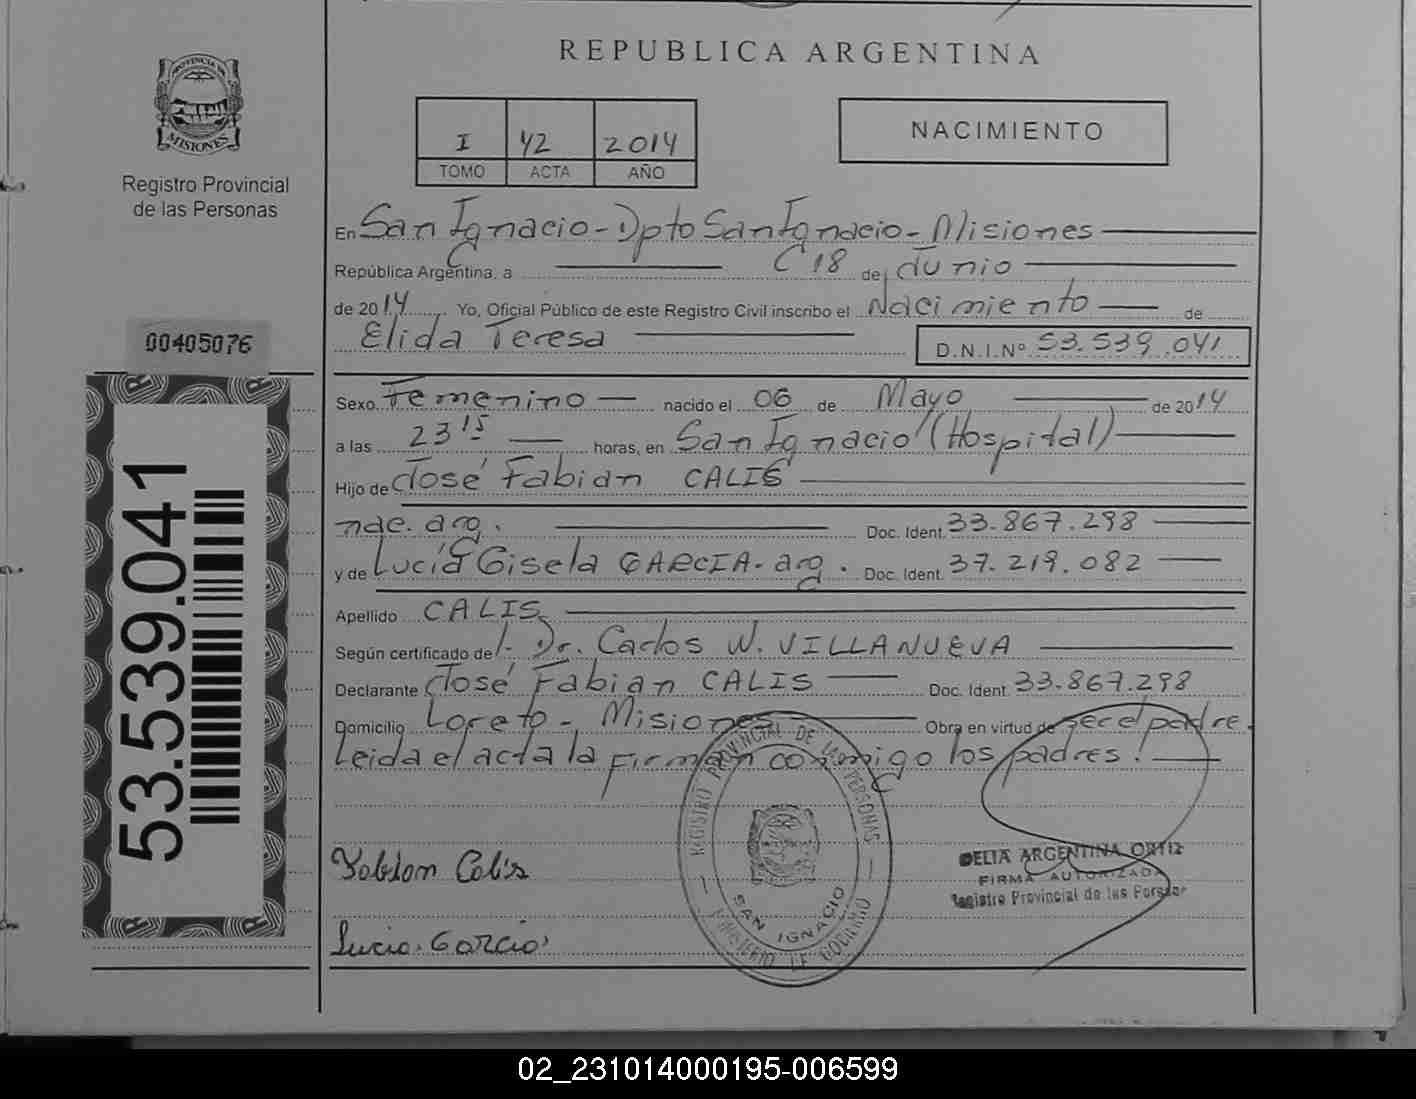 REPUBLICA ARGENTINA
PROVINCIA DE
MISIONES
Registro Provincial
de las Personas
I 42 2014
TOMO ACTA AÑO
NACIMIENTO
En San Ignacio - Dpto San Ignacio - Misiones
República Argentina, a 18 de Junio
de 2014 Yo, Oficial Público de este Registro Civil inscribo el Nacimiento de
Elida Teresa D.N.I.Nº 53.539.041
00405076
53.539.041
Sexo Femenino nacido el 06 de Mayo de 2014
a las 23 15 horas, en San Ignacio (Hospital)
Hijo de José Fabian CALIS
nac. arg. Doc. Ident. 33.867.298
y de Lucía Gisela GARCIA - arg. Doc. Ident. 37.219.082
Apellido CALIS
Según certificado del Dr. Carlos W. VILLANUEVA
Declarante José Fabian CALIS Doc. Ident 33.867.298
Domicilio Loreto - Misiones Obra en virtud de ser el padre.
Leida el acta la firman conmigo los padres!
REGISTRO PROVINCIAL DE LAS PERSONAS
SAN IGNACIO
MINISTERIO DE GOBIERNO
Fabian Calis
Lucia Garcia
DELIA ARGENTINA ORTIZ
FIRMA AUTORIZADA
Registro Provincial de las Personas
02_231014000195-006599